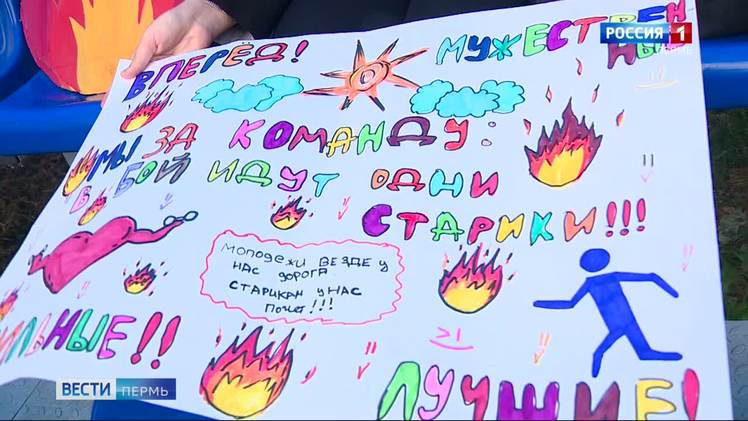 РОССИЯ 1
ВПЕРЁД! МУЖЕСТВЕН
НЫЕ
МЫ ЗА КОМАНДУ:
В БОЙ ИДУТ ОДНИ
СТАРИКИ!!!
МОЛОДЕЖИ ВЕЗДЕ У
НАС ДОРОГА
СТАРИКАМ У НАС
ПОЧЕТ!!!
ИЛЬНЫЕ!!
ЛУЧШИЕ!
ВЕСТИ ПЕРМЬ